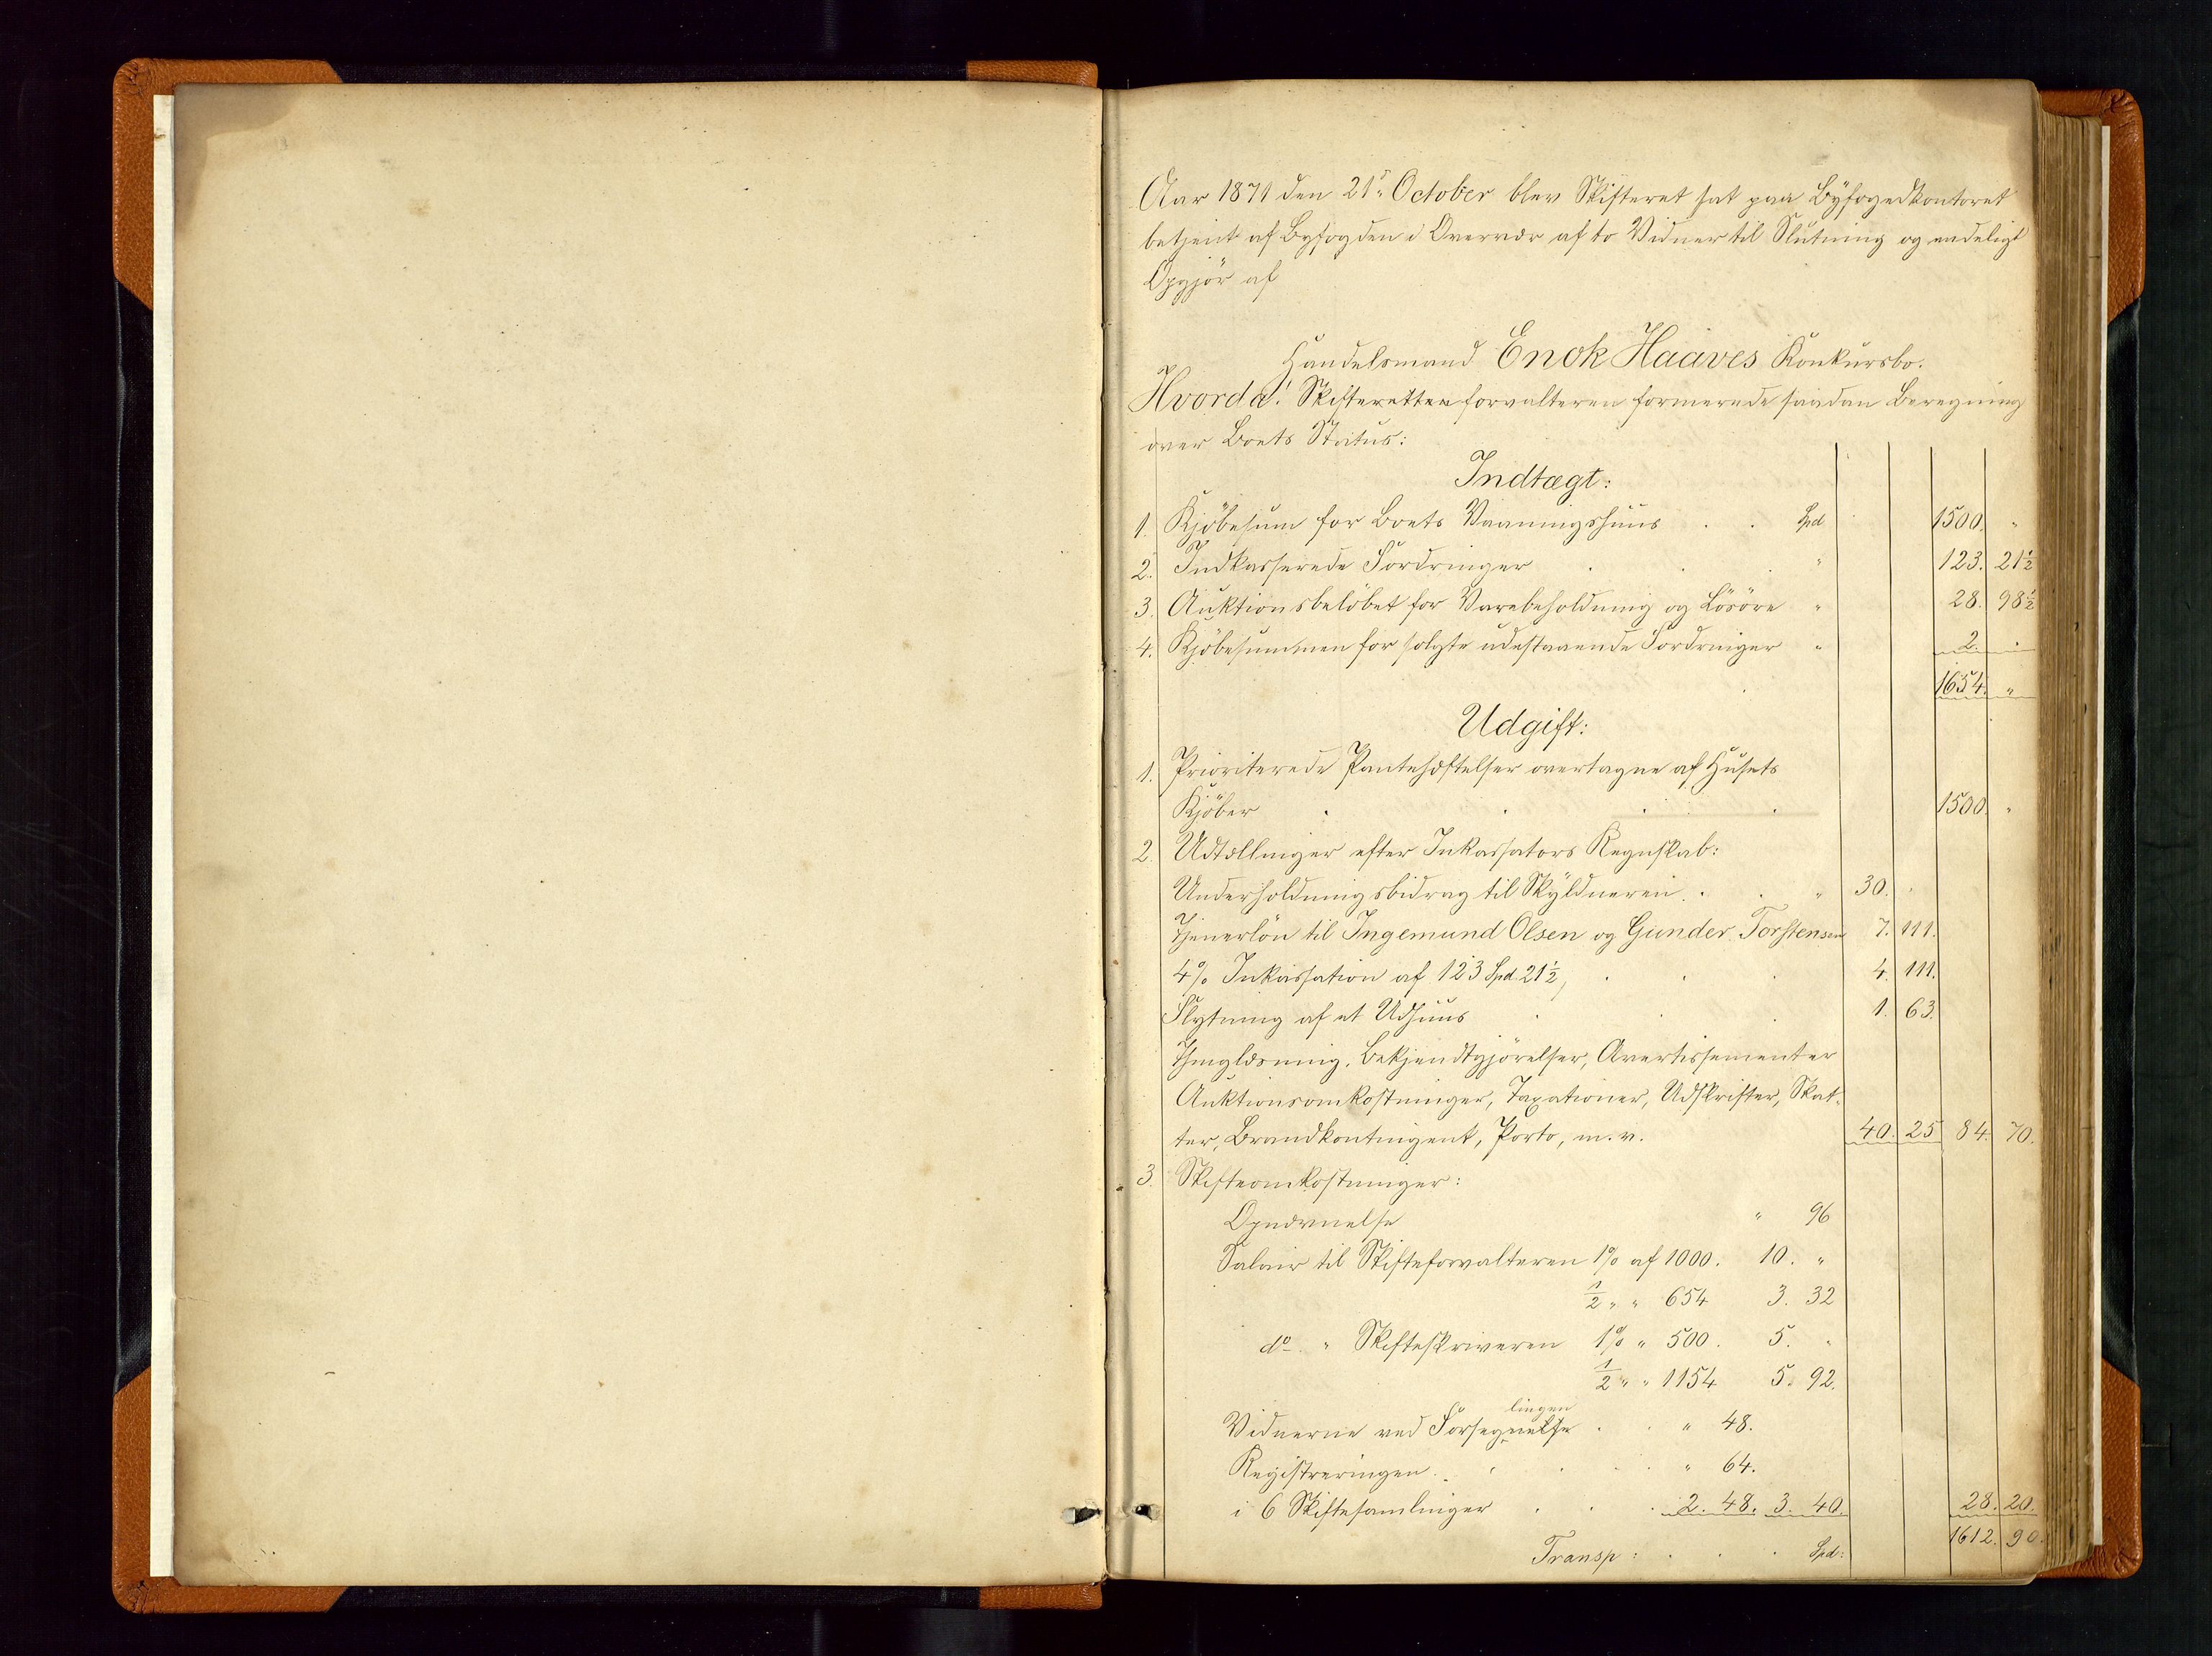 Aar 1871 den 21de October blev Skifteret sat paa Byfogedkontoret
betjent af Byfogden i Overvær af to Vidner til Slutning og endeligt
Opgjør af
Handelsmand Enok Haaves Konkursbo.
Hvorda! Skifteretten forvalteren formerede saadan Beregning
over Boets Status:
Indtægt:
1. Kjöbesum for Boets Vaaningshuus . . Spd 1500. "
2. Indkasserede Fordringer . . . " 123. 21½
3. Auktionsbelöbet for Varebeholdning og Lösöre " 28. 98½
4. Kjöbesummen for solgte udestaaende Fordringer " 2. .
1654. "
Udgift:
1. Prioriterede Pantehæftelser overtagne af Husets
Kjöber . . . . 1500. "
2. Udtællinger efter Inkassators Regnskab:
Underholdningsbidrag til Skyldneren . . " 30. .
Tjenerlön til Ingemund Olsen og Gunder Torstensen 7. 111.
4% Inkassation af 123 Spd 21½, . . 4. 111.
Flytning af et Udhuus . . . 1. 63.
Thinglæsning, Bekjendtgjörelser, Avertissementer
Auktionsomkostninger, Taxationer, Udskrifter, Skat-
ter, Brandkontingent, Porto, m.v. 40. 25 84. 70.
3. Skifteomkostninger:
Opnævnelse " 96
Salair til Skifteforvalteren 1% af 1000. 10. "
½ " " 654 3. 32
do. " Skifteskriveren 1% " 500. 5. "
½ " " 1154 5. 92.
lingen
Vidnerne ved Forsegnelse . . " 48.
Registreringen . . . . " 64.
i 6 Skiftesamlinger . . . 2. 48. 3. 40. 28. 20.
Transp: . . . Spd: 1612. 90.